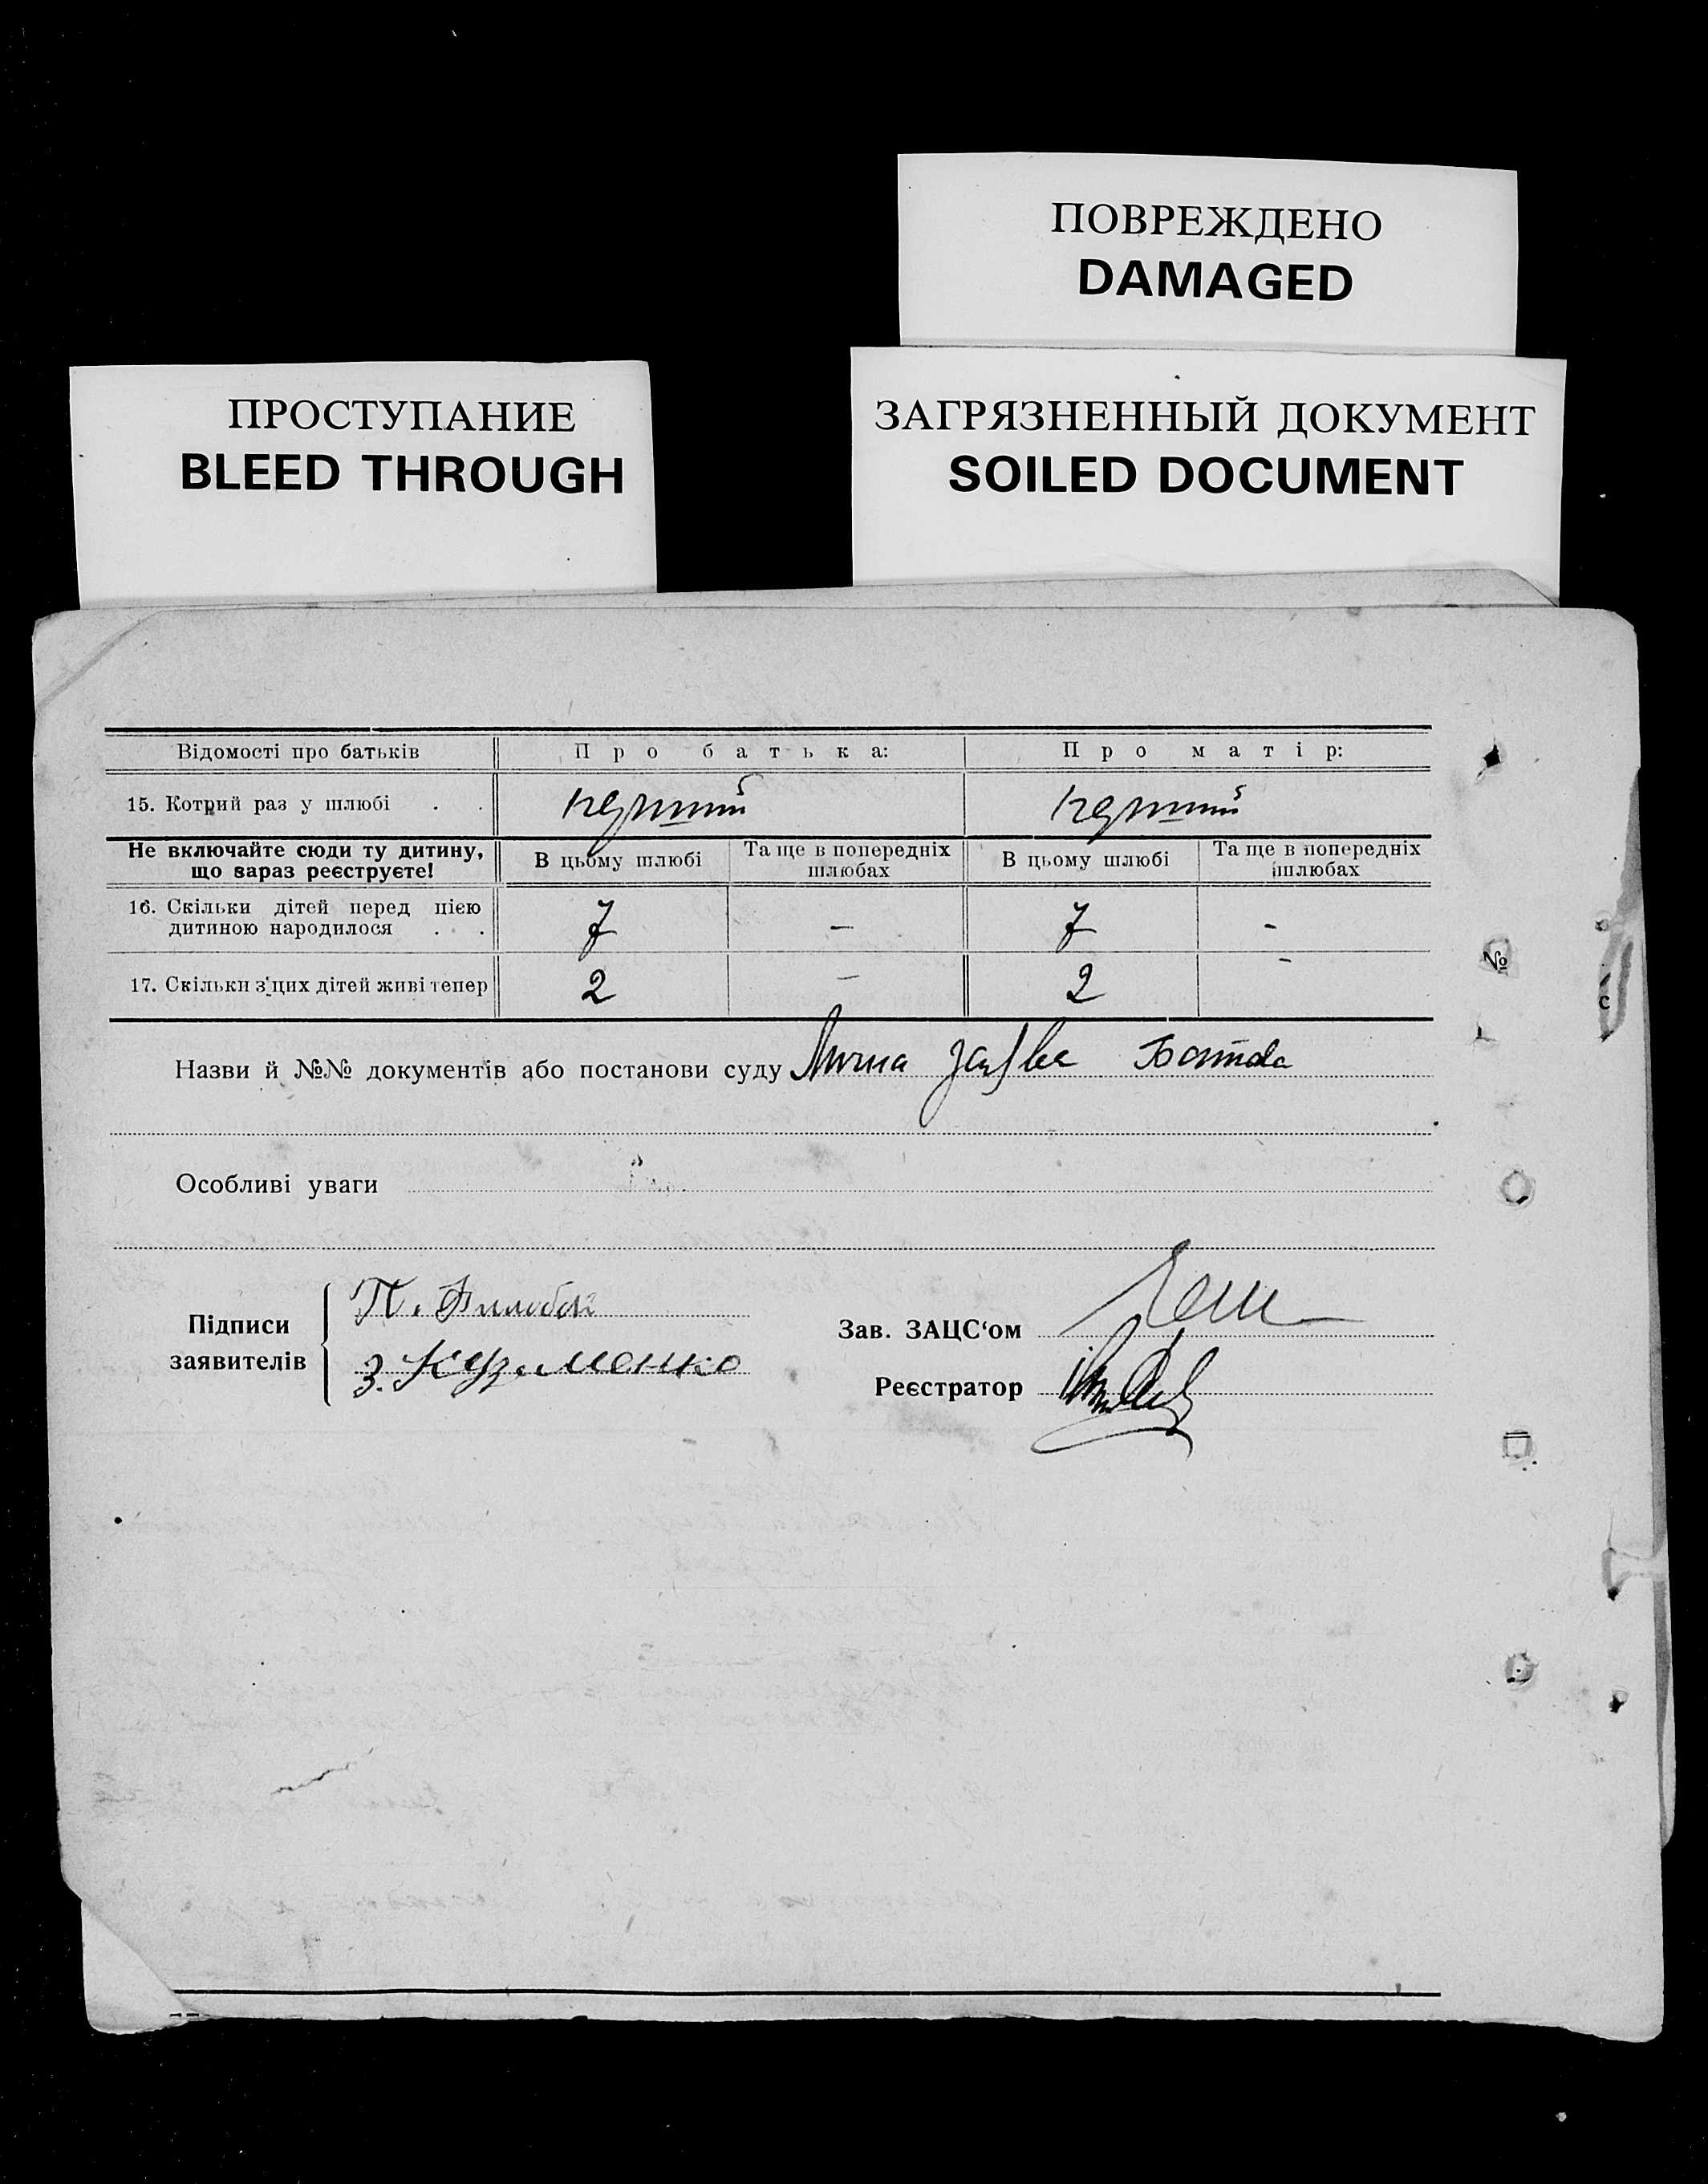 ПОВРЕЖДЕНО
DAMAGED
ПРОСТУПАНИЕ
BLEED THROUGH
ЗАГРЯЗНЕННЫЙ ДОКУМЕНТ
SOILED DOCUMENT
Відомості про батьків Про батька: Про матір:
15. Котрий раз у шлюбі . . перший перший
Не включайте сюди ту дитину, що зараз реєструєте! В цьому шлюбі Та ще в попередніх шлюбах В цьому шлюбі Та ще в попередніх шлюбах
16. Скільки дітей перед цією дитиною народилося . . 7 — 7 -
17. Скільки з цих дітей живі тепер 2 — 2 -
Назви й №№ документів або постанови суду Лична
Особливі уваги
Підписи заявителів
П.
З. Кузьменко
Зав. ЗАЦС‘ом
Реєстратор
№
с